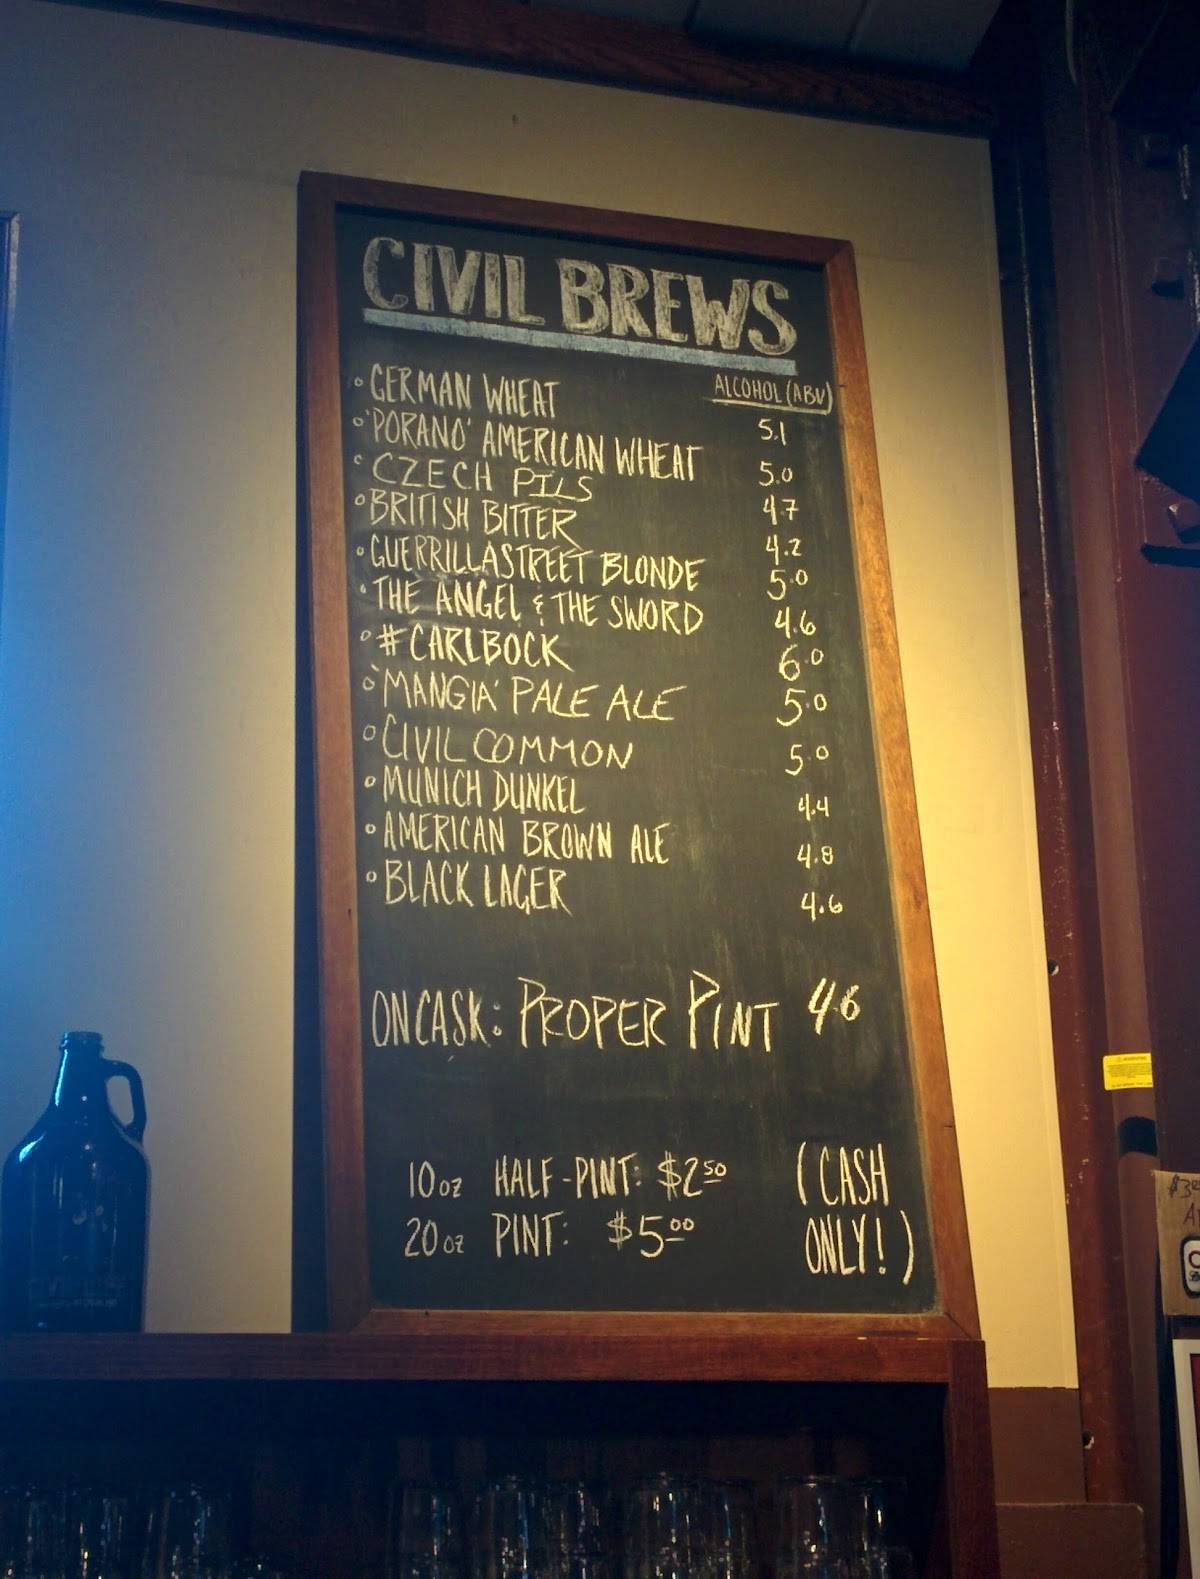 CIVIL BREWS
ALCOHOL (ABV)
GERMAN WHEAT 5.1
'PORANO' AMERICAN WHEAT 5.0
CZECH PILS 4.7
BRITISH BITTER 4.2
GUERRILLA STREET BLONDE 5.0
THE ANGEL & THE SWORD 4.6
#CARLBOCK 6.0
'MANGIA' PALE ALE 5.0
CIVIL COMMON 5.0
MUNICH DUNKEL 4.4
AMERICAN BROWN ALE 4.8
BLACK LAGER 4.6
ON CASK: PROPER PINT 4.6
10oz HALF-PINT: $2.50 (CASH
20oz PINT: $5.00 ONLY!)